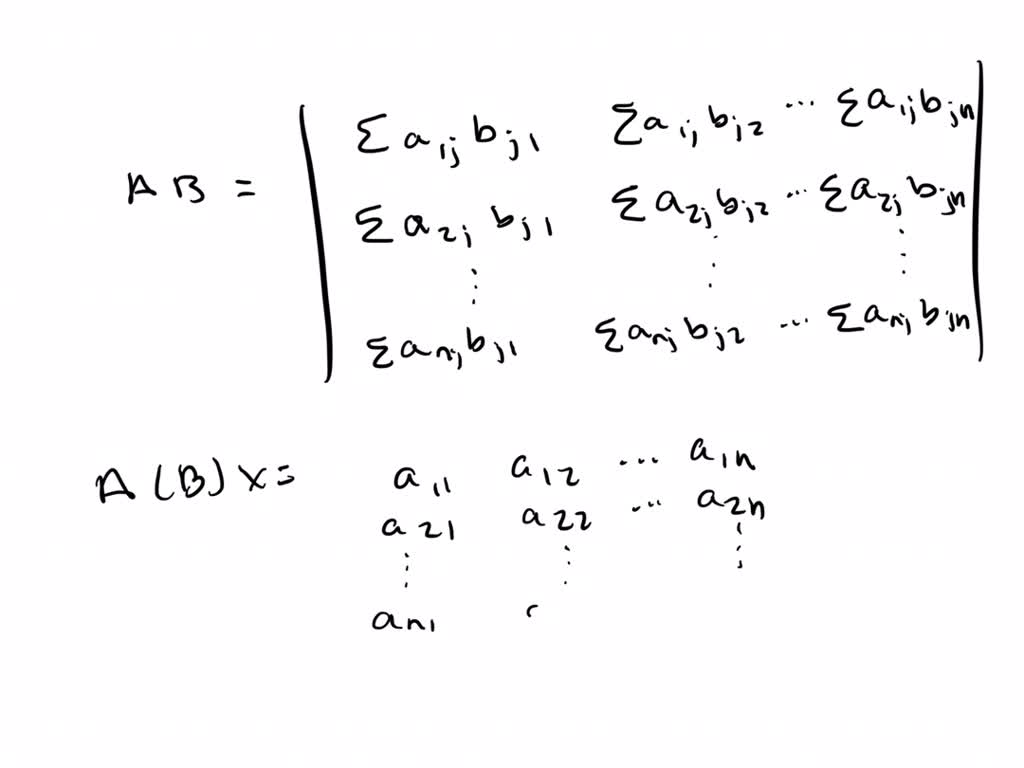 AB = | Σa₁ⱼbⱼ₁ Σa₁ⱼbⱼ₂ ... Σa₁ⱼbⱼₙ |
Σa₂ⱼbⱼ₁ Σa₂ⱼbⱼ₂ ... Σa₂ⱼbⱼₙ
⋮ ⋮ ⋮
Σaₙⱼbⱼ₁ Σaₙⱼbⱼ₂ ... Σaₙⱼbⱼₙ
A(B)x= a₁₁ a₁₂ ... a₁ₙ
a₂₁ a₂₂ ... a₂ₙ
⋮ ⋮ ⋮
aₙ₁